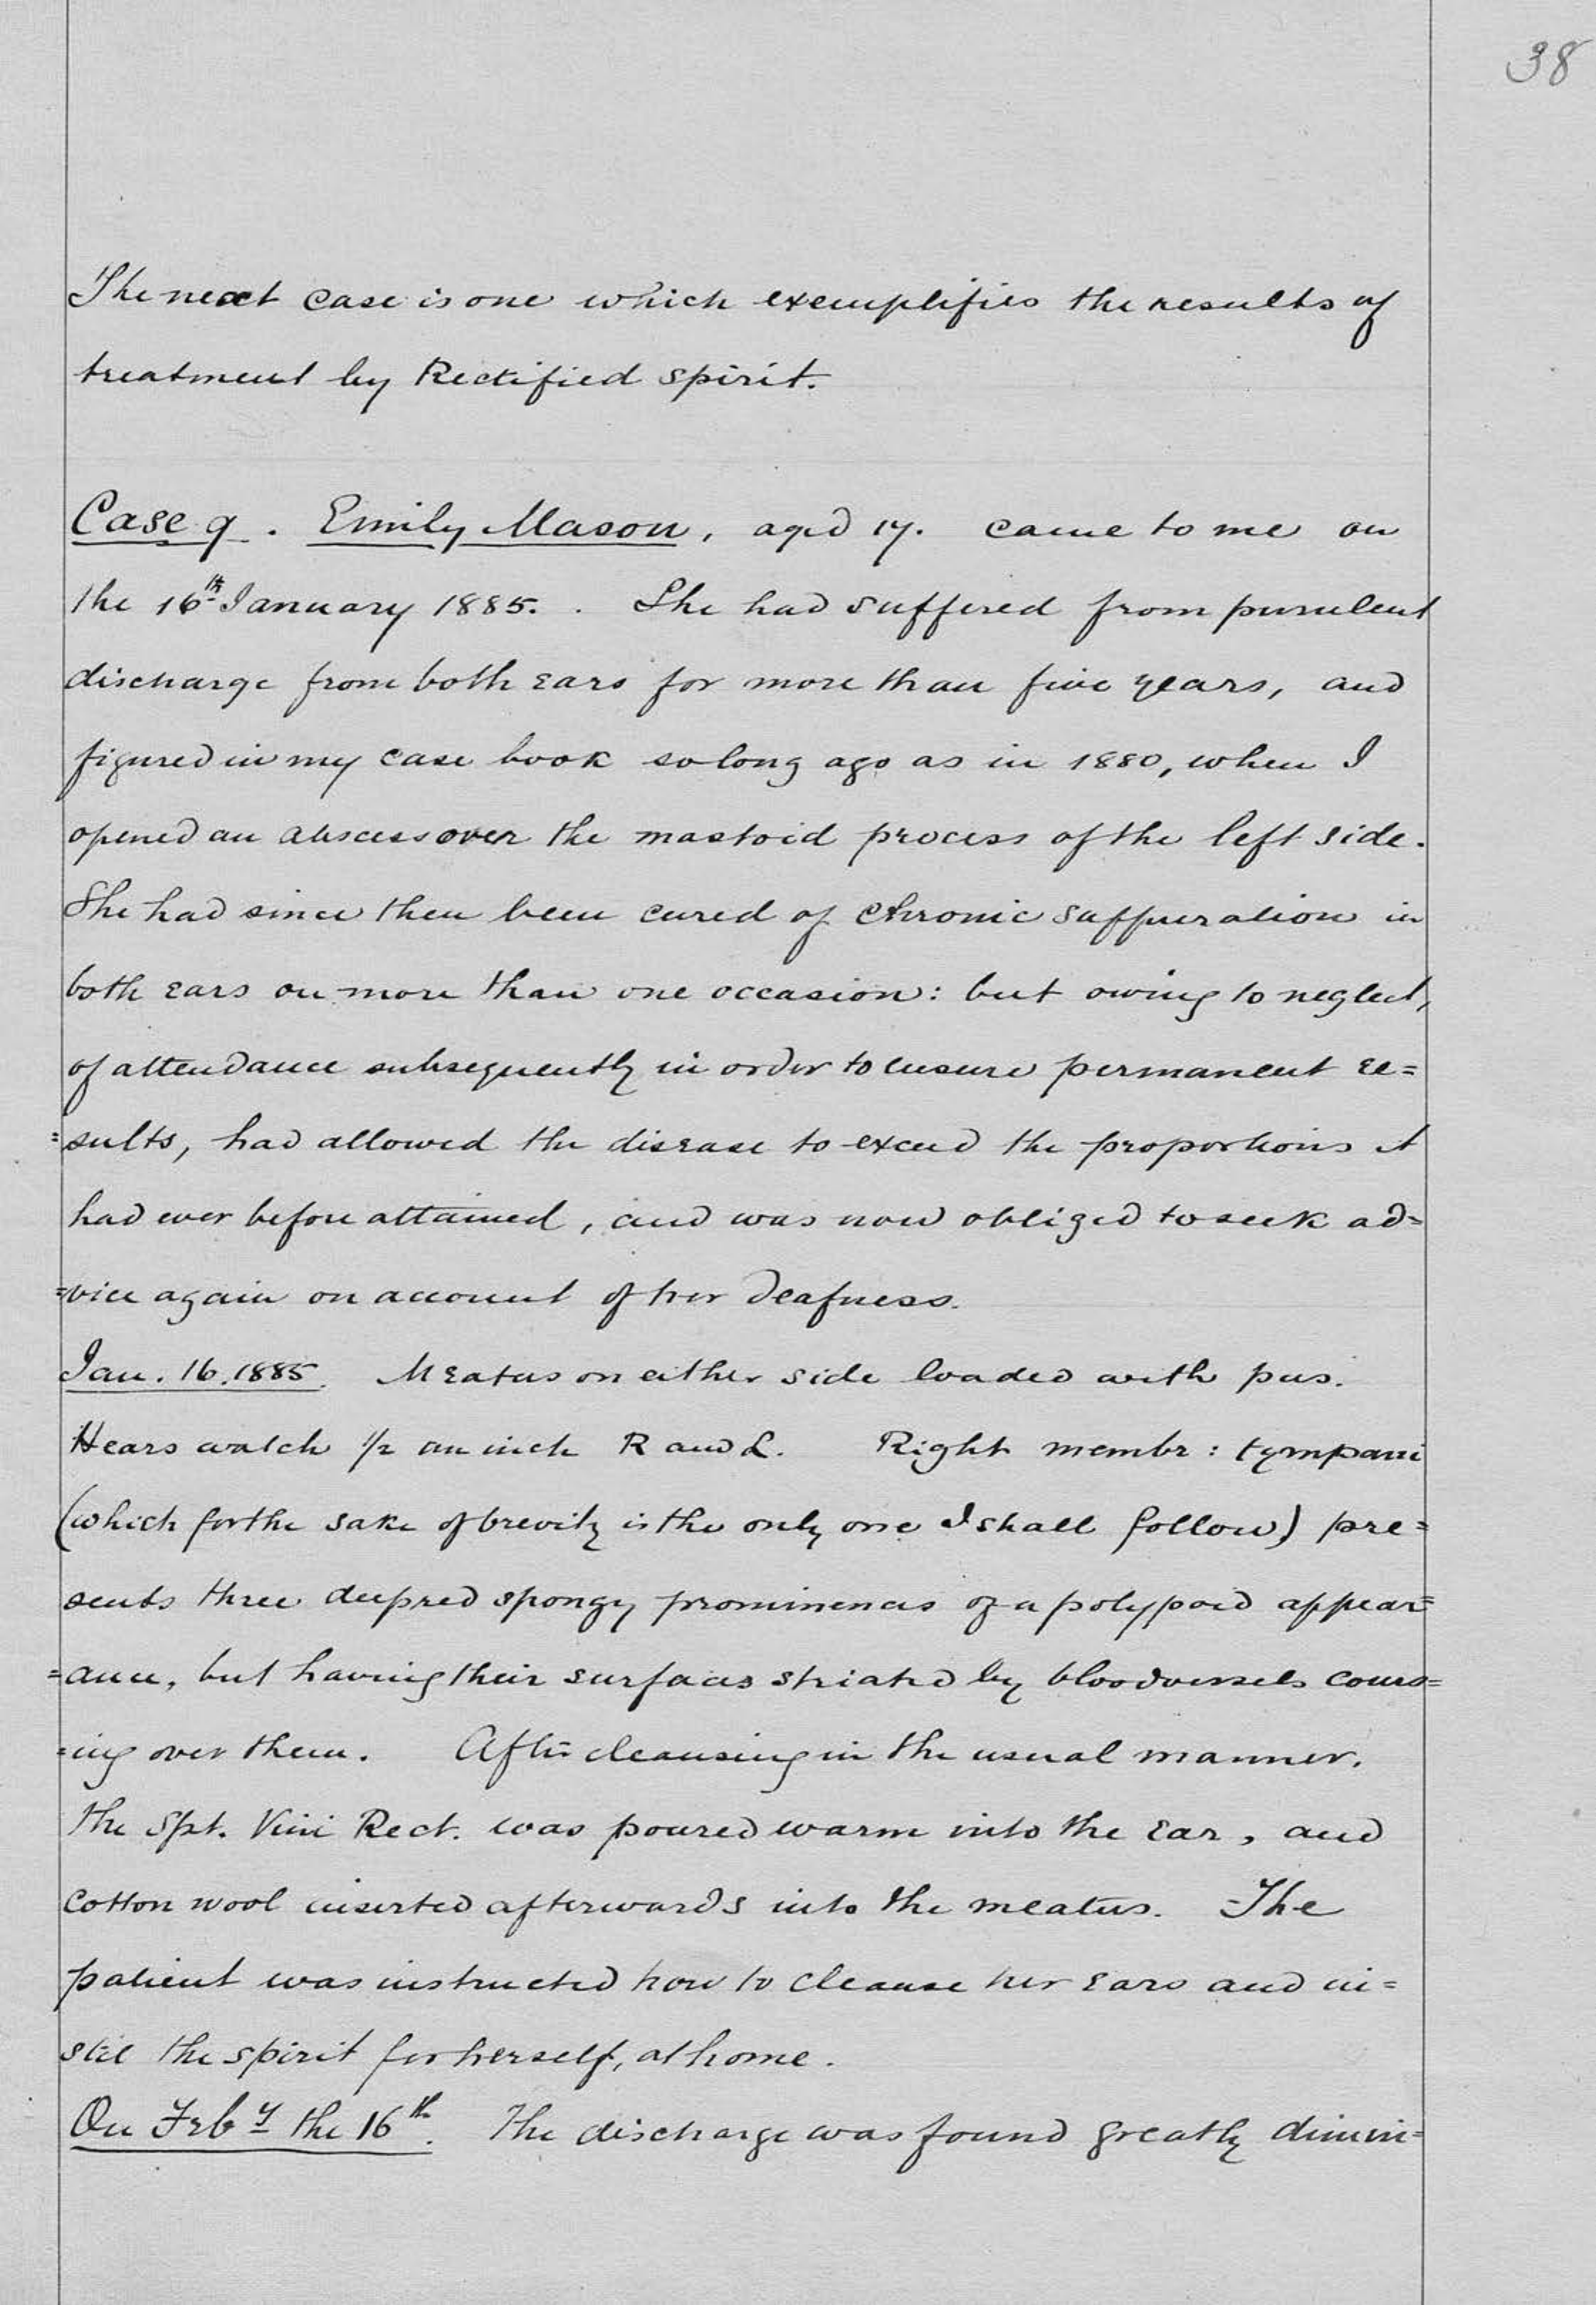 38
The next case is one which exemplifies the results of
treatment by Rectified spirit.
Case 9. Emily Mason, aged 17. came to me on
the 16th January 1885. . She had suffered from purulent
discharge from both ears for more than five years, and
figured in my case book so long ago as in 1880, when I
opened an abscess over the mastoid process of the left side.
She had since then been cured of chronic suppuration in
both ears on more than one occasion: but owing to neglect,
of attendance subsequently in order to ensure permanent re=
=sults, had allowed the disease to exceed the proportions it
had ever before attained, and was now obliged to seek ad=
=vice again on account of her deafness.
Jan. 16. 1885. Meatus on either side loaded with pus.
Hears watch 1/2 an inch R and L. Right membr: tympani
(which for the sake of brevity is the only one I shall follow) pre=
sents three deep red spongy prominences of a polypoid appear=
=ance, but having their surfaces striated by bloodvessels cours=
=ing over them. After cleansing in the usual manner.
the Spt. Vini Rect. was poured warm into the ear, and
cotton wool inserted afterwards into the meatus. The
patient was instructed how to cleanse her ears and in=
stil the spirit for herself, at home.
On Feby the 16th. The discharge was found greatly dimin=